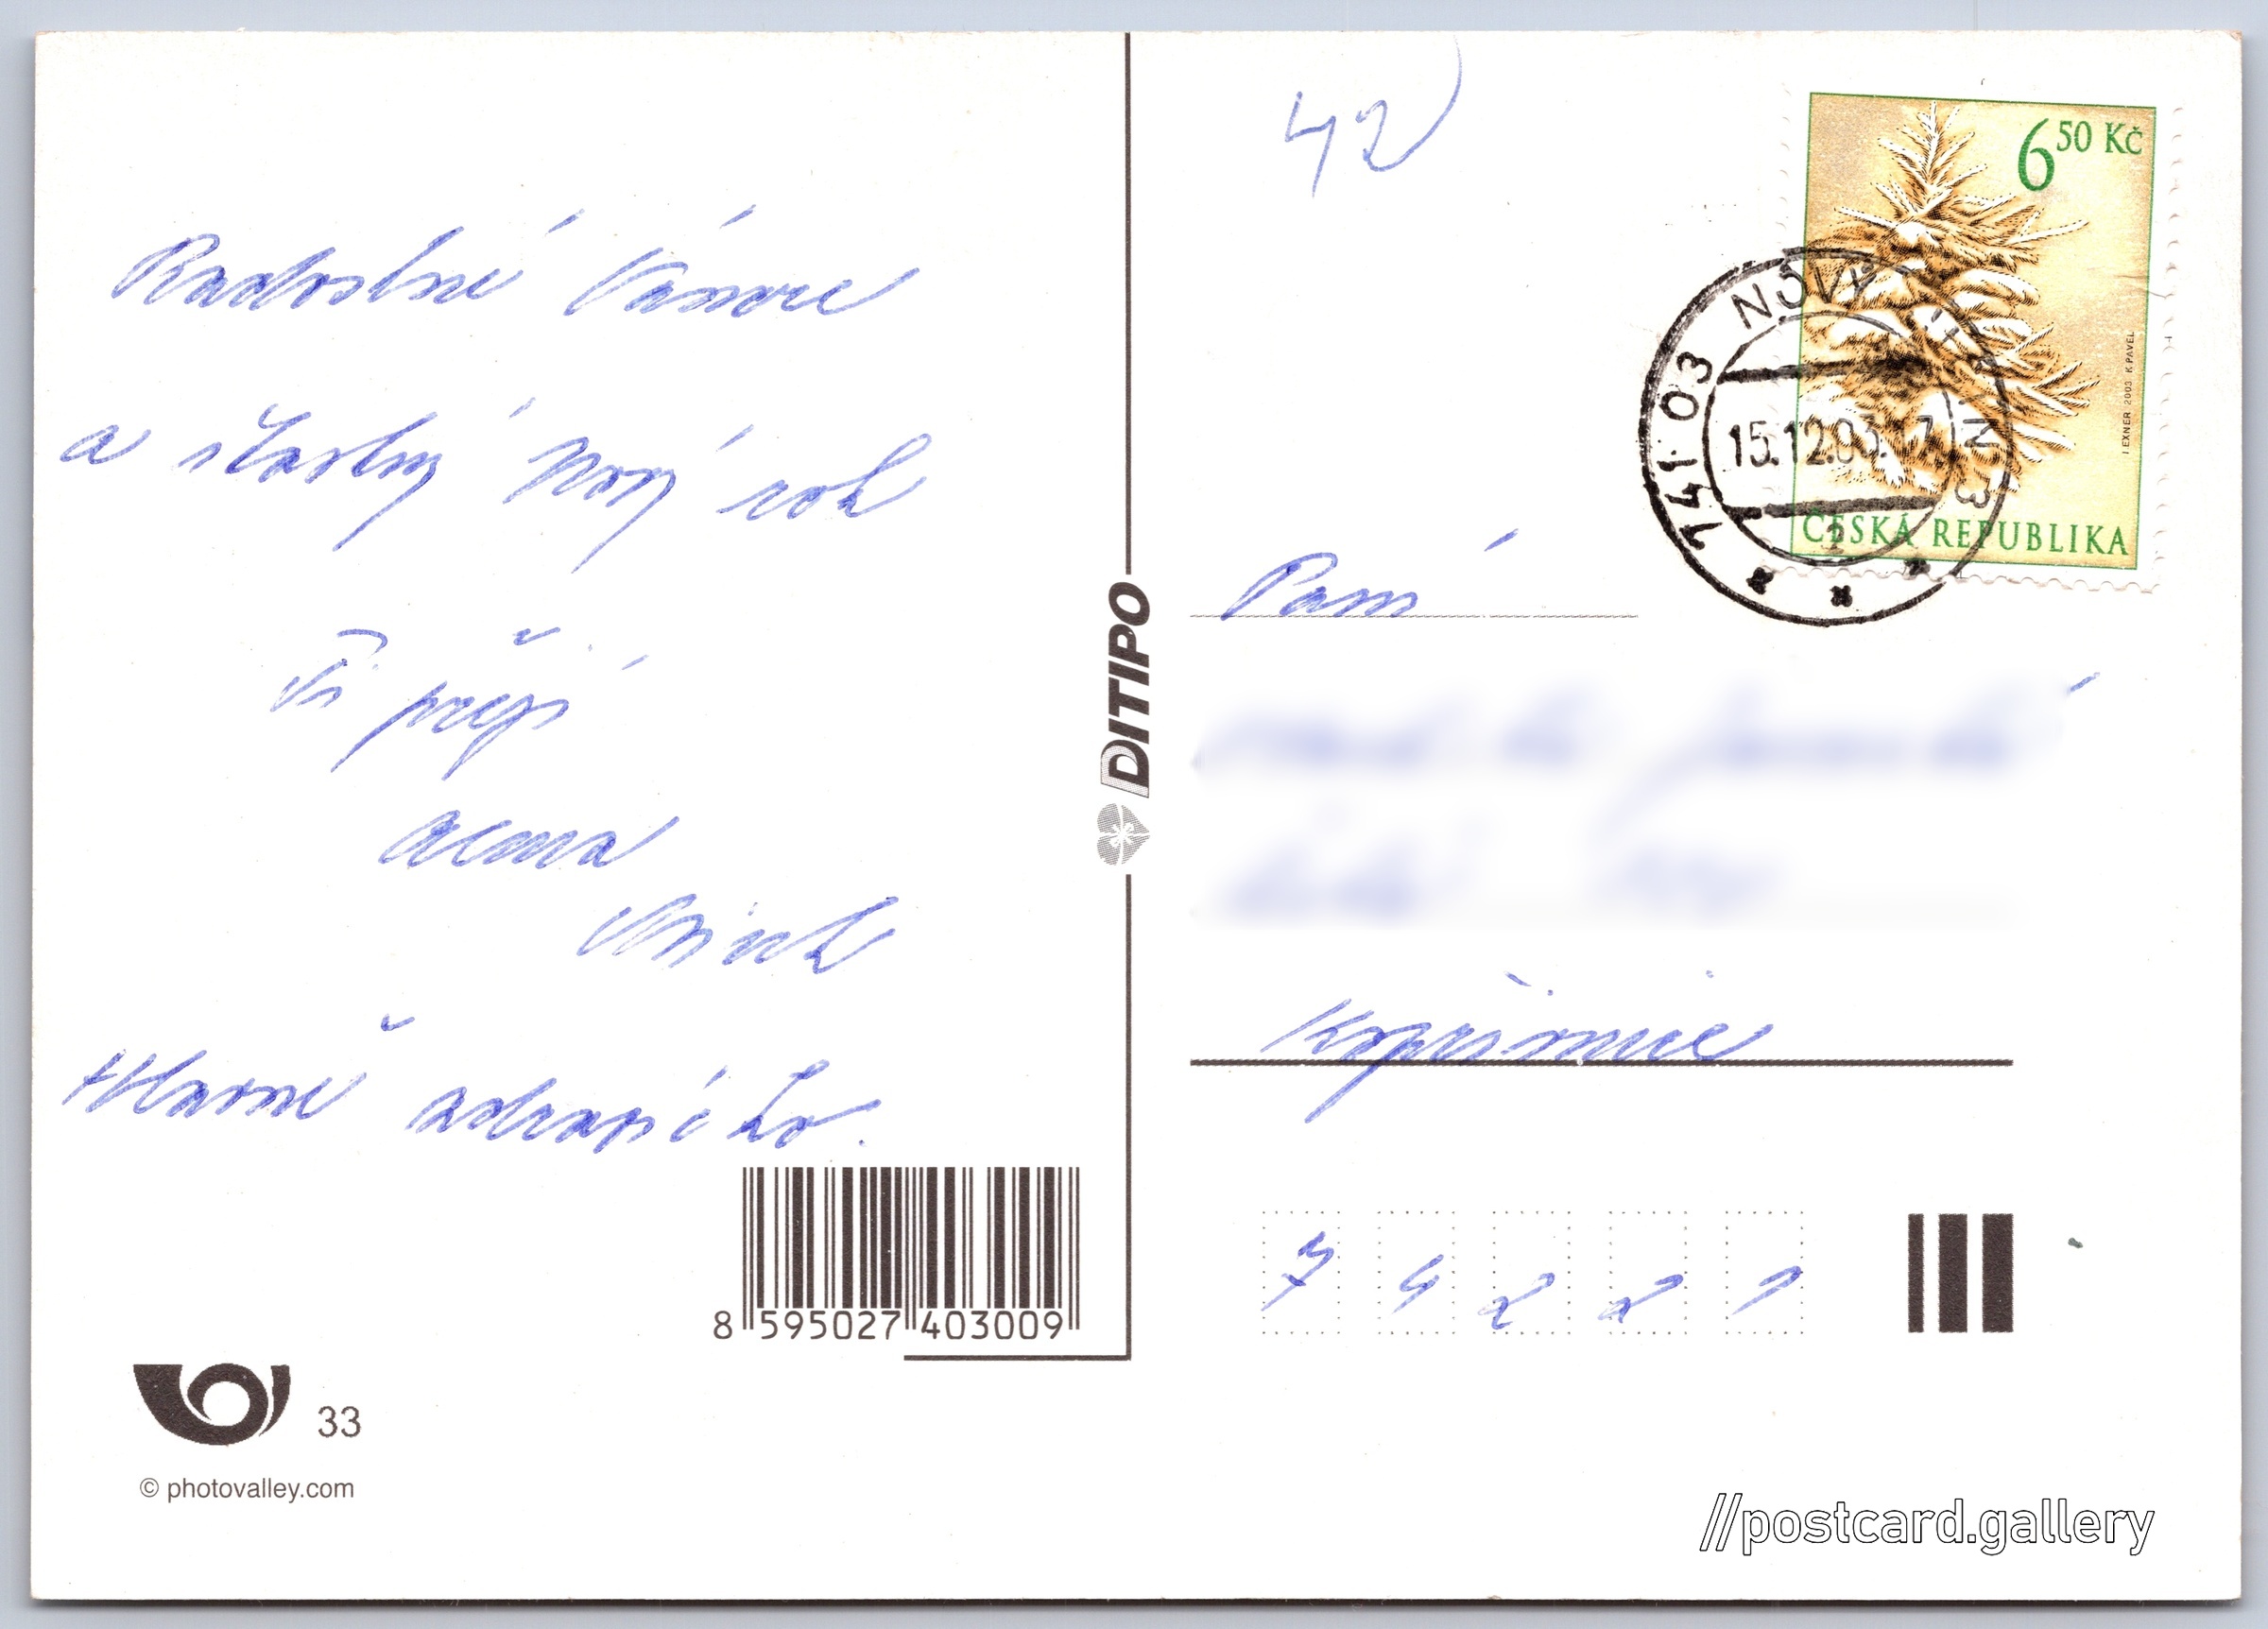 Radostné Vánoce
a šťastný Nový rok
Ti přeji
Hlavně zdraví Ti.
8 595027 403009
33
© photovalley.com
DITIPO
42
6 50 Kč
ČESKÁ REPUBLIKA
J EXNER 2003 K PAVEL
741 03 NOVÝ JIČÍN 3
15.12.03. 17
2
Paní
Kopřivnice
7 4 2 2 1
//postcard.gallery